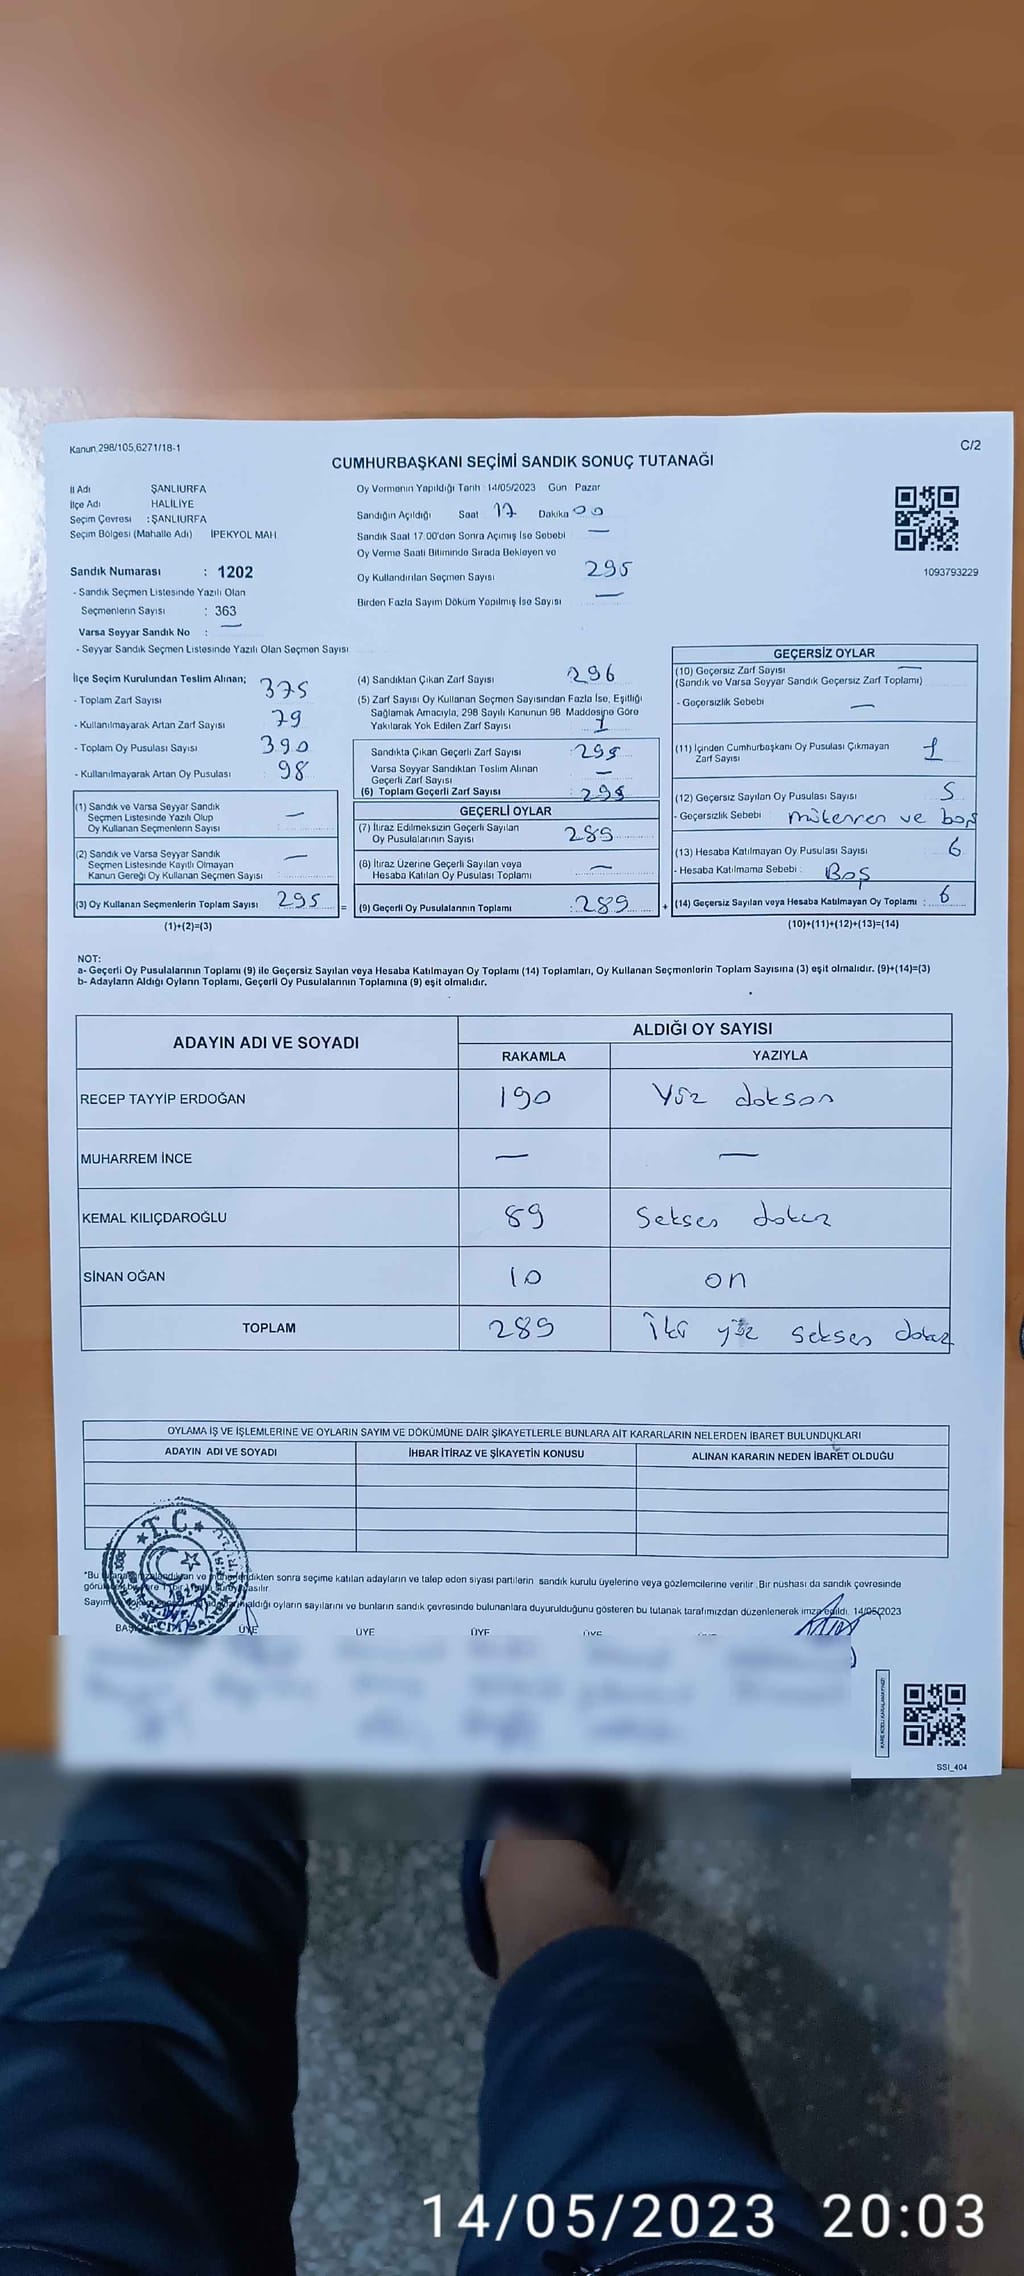 Kanun 298/105,6271/18-1
C/2
CUMHURBAŞKANI SEÇİMİ SANDIK SONUÇ TUTANAĞI
İl Adı ŞANLIURFA
İlçe Adı HALİLİYE
Seçim Çevresi : ŞANLIURFA
Seçim Bölgesi (Mahalle Adı) İPEKYOL MAH
Sandık Numarası : 1202
- Sandık Seçmen Listesinde Yazılı Olan
Seçmenlerin Sayısı : 363
Varsa Seyyar Sandık No : —
- Seyyar Sandık Seçmen Listesinde Yazılı Olan Seçmen Sayısı
Oy Vermenin Yapıldığı Tarih : 14/05/2023 Gün Pazar
Sandığın Açıldığı Saat 17 Dakika 00
Sandık Saat 17.00'den Sonra Açımış İse Sebebi —
Oy Verme Saati Bitiminde Sırada Bekleyen ve
Oy Kullandırılan Seçmen Sayısı 295
Birden Fazla Sayım Döküm Yapılmış İse Sayısı —
1093793229
İlçe Seçim Kurulundan Teslim Alınan;
- Toplam Zarf Sayısı 375
- Kullanılmayarak Artan Zarf Sayısı 79
- Toplam Oy Pusulası Sayısı 390
- Kullanılmayarak Artan Oy Pusulası 98
(1) Sandık ve Varsa Seyyar Sandık
Seçmen Listesinde Yazılı Olup
Oy Kullanan Seçmenlerin Sayısı —
(2) Sandık ve Varsa Seyyar Sandık
Seçmen Listesinde Kayıtlı Olmayan
Kanun Gereği Oy Kullanan Seçmen Sayısı —
(3) Oy Kullanan Seçmenlerin Toplam Sayısı 295 =
(1)+(2)=(3)
(4) Sandıktan Çıkan Zarf Sayısı 296
(5) Zarf Sayısı Oy Kullanan Seçmen Sayısından Fazla İse, Eşitliği
Sağlamak Amacıyla, 298 Sayılı Kanunun 98 Maddesine Göre
Yakılarak Yok Edilen Zarf Sayısı 1
Sandıkta Çıkan Geçerli Zarf Sayısı : 295
Varsa Seyyar Sandıktan Teslim Alınan
Geçerli Zarf Sayısı —
(6) Toplam Geçerli Zarf Sayısı : 295
GEÇERLİ OYLAR
(7) İtiraz Edilmeksizin Geçerli Sayılan
Oy Pusulalarının Sayısı 289
(8) İtiraz Üzerine Geçerli Sayılan veya
Hesaba Katılan Oy Pusulası Toplamı —
(9) Geçerli Oy Pusulalarının Toplamı : 289 +
GEÇERSİZ OYLAR
(10) Geçersiz Zarf Sayısı —
(Sandık ve Varsa Seyyar Sandık Geçersiz Zarf Toplamı)
- Geçersizlik Sebebi —
(11) İçinden Cumhurbaşkanı Oy Pusulası Çıkmayan
Zarf Sayısı 1
(12) Geçersiz Sayılan Oy Pusulası Sayısı 5
- Geçersizlik Sebebi : mükerrer ve boş
(13) Hesaba Katılmayan Oy Pusulası Sayısı 6
- Hesaba Katılmama Sebebi : Boş
(14) Geçersiz Sayılan veya Hesaba Katılmayan Oy Toplamı : 6
(10)+(11)+(12)+(13)=(14)
NOT:
a- Geçerli Oy Pusulalarının Toplamı (9) ile Geçersiz Sayılan veya Hesaba Katılmayan Oy Toplamı (14) Toplamları, Oy Kullanan Seçmenlerin Toplam Sayısına (3) eşit olmalıdır. (9)+(14)=(3)
b- Adayların Aldığı Oyların Toplamı, Geçerli Oy Pusulalarının Toplamına (9) eşit olmalıdır.
ADAYIN ADI VE SOYADI
ALDIĞI OY SAYISI
RAKAMLA YAZIYLA
RECEP TAYYİP ERDOĞAN 190 Yüz doksan
MUHARREM İNCE — —
KEMAL KILIÇDAROĞLU 89 Seksen dokuz
SİNAN OĞAN 10 on
TOPLAM 289 İki yüz seksen dokuz
OYLAMA İŞ VE İŞLEMLERİNE VE OYLARIN SAYIM VE DÖKÜMÜNE DAİR ŞİKAYETLERLE BUNLARA AİT KARARLARIN NELERDEN İBARET BULUNDUKLARI
ADAYIN ADI VE SOYADI İHBAR İTİRAZ VE ŞİKAYETİN KONUSU ALINAN KARARIN NEDEN İBARET OLDUĞU
T.C.
*Bu ve sonra seçime katılan adayların ve talep eden siyasi partilerin sandık kurulu üyelerine veya gözlemcilerine verilir. Bir nüshası da sandık çevresinde
aldığı oyların sayılarını ve bunların sandık çevresinde bulunanlara duyurulduğunu gösteren bu tutanak tarafımızdan düzenlenerek imza edildi. 14/05/2023
ÜYE ÜYE ÜYE ÜYE
SSI_404
14/05/2023 20:03